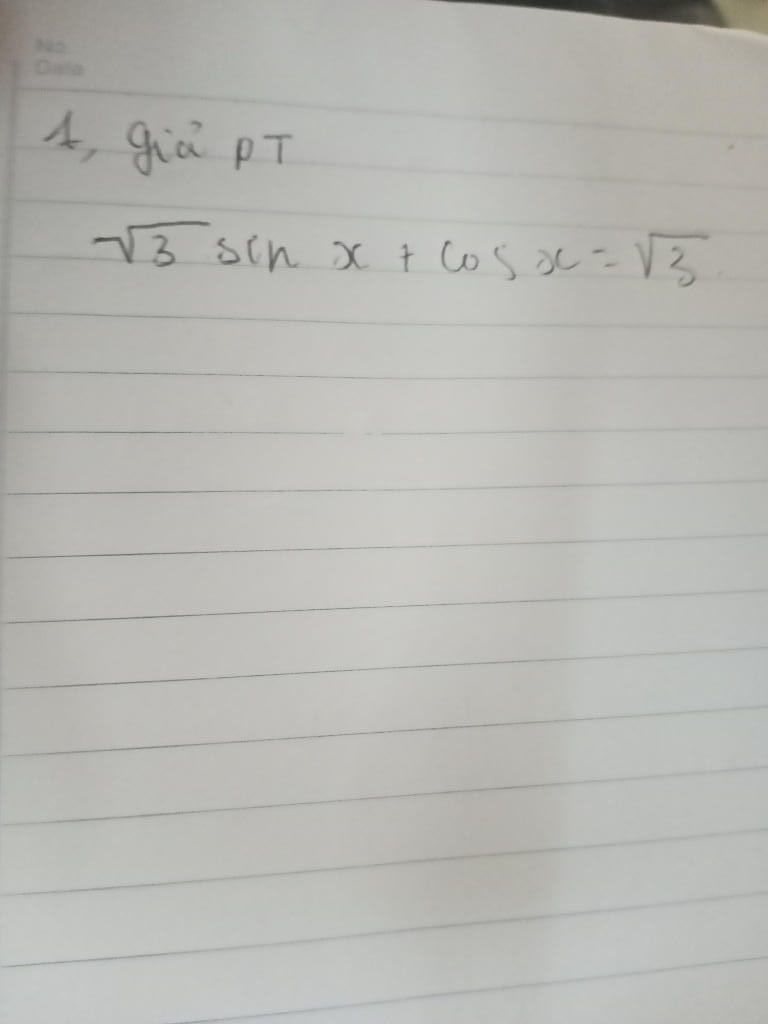 No.
Date
1, giả PT
√3 sin x + cos x = √3